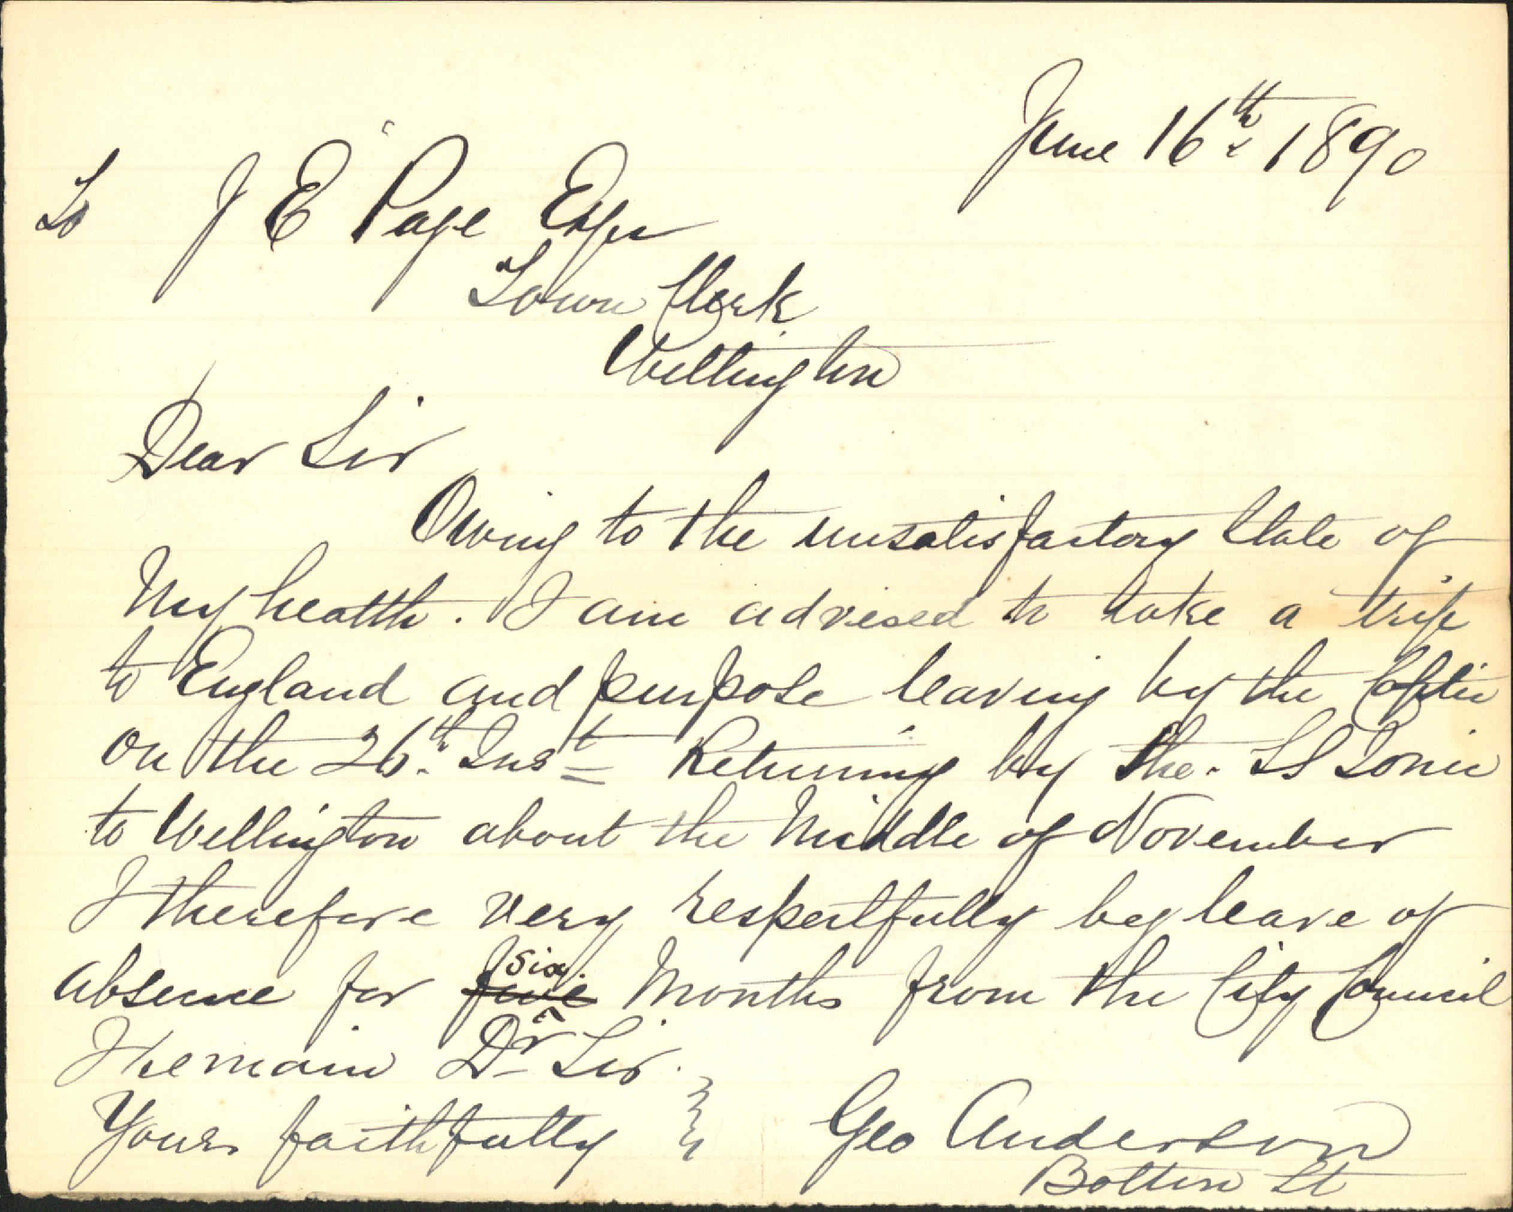 June 16th 1890
To J E Page Esqr
Town Clerk
Wellington
Dear Sir
Owing to the unsatisfactory State of
My health. I am advised to take a trip
to England and purpose leaving by the Coptic
on the 26th Inst Returning by the. SS Ionic
to Wellington about the Middle of November
I therefore very respectfully beg leave of
absence for five six Months from the City Council
I remain Dr Sir.
Yours faithfully Geo Anderson
Bolton St